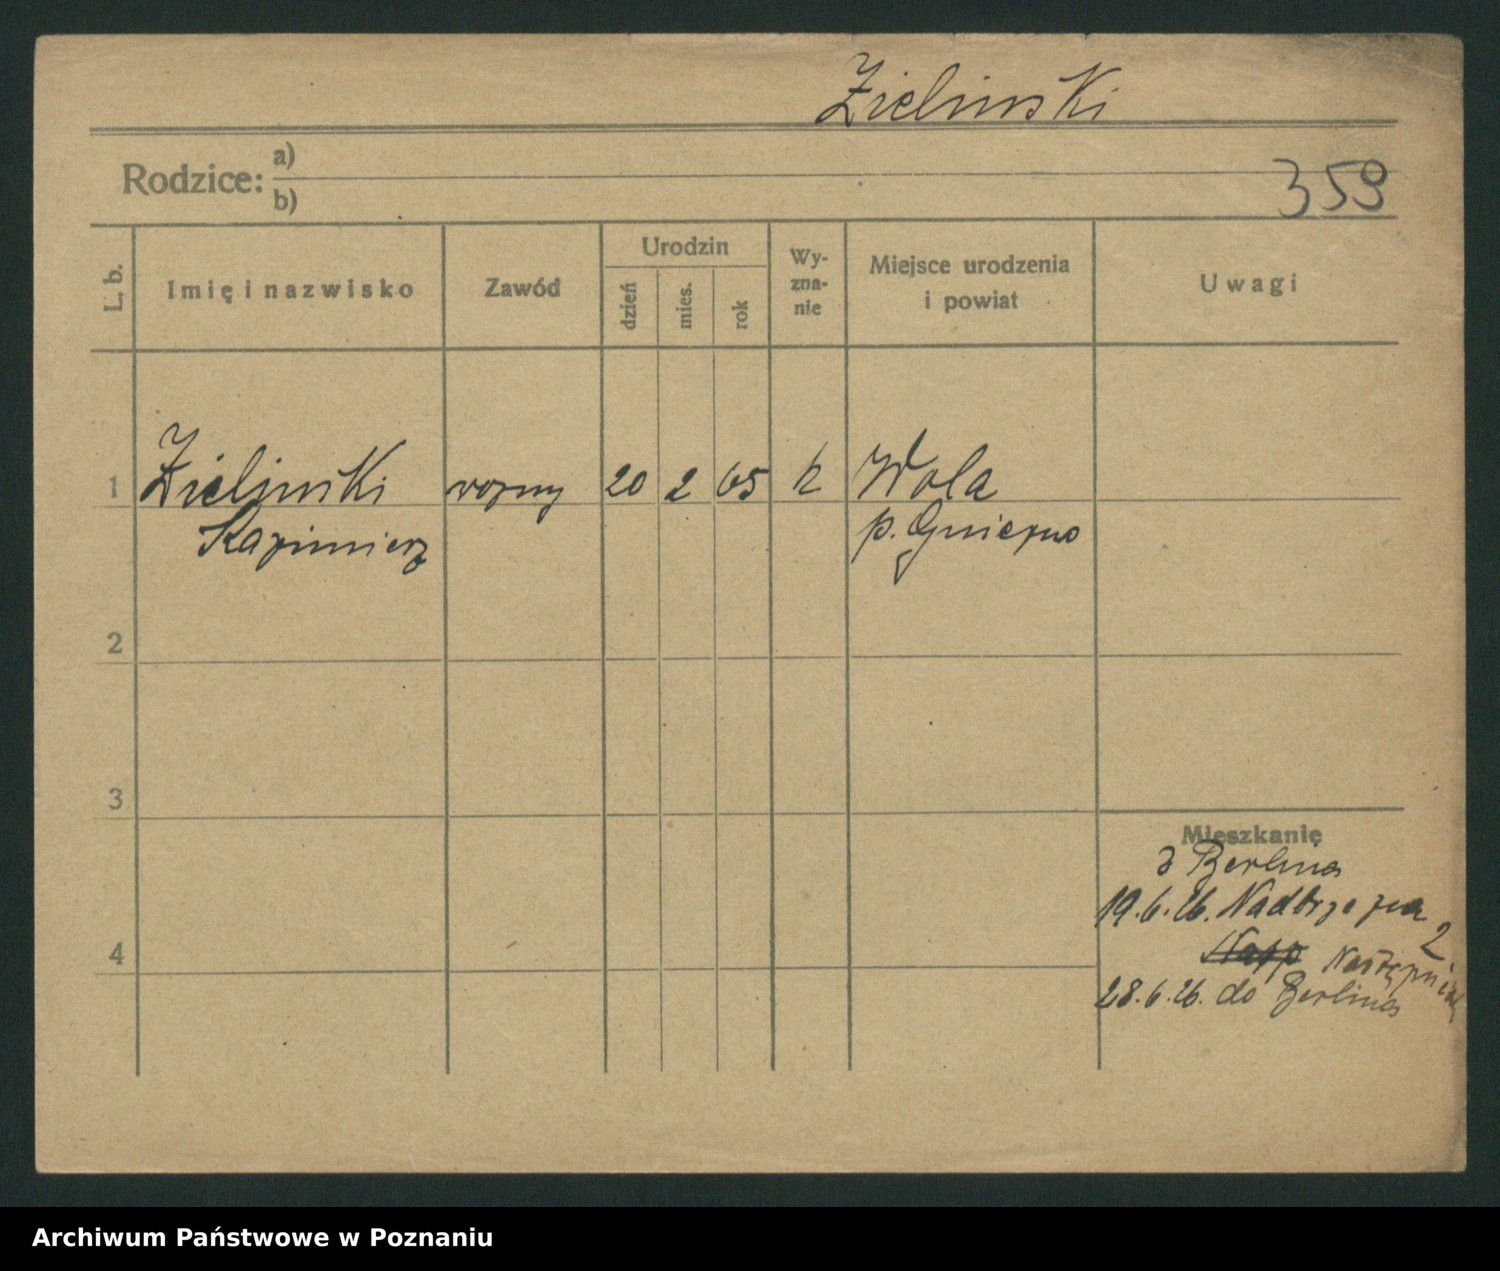 Zielinski
Rodzice: a)
b)
359
L. b.
Imię i nazwisko
Zawód
Urodzin
dzień
mies.
rok
Wy-
zna-
nie
Miejsce urodzenia
i powiat
Uwagi
1 Zielinski woźny 20 2 65 k Wola
Kazimierz p. Gniezno
2
3
Mieszkanię
z Berlina
19.6.26. Nadbrzeżna 2
4
28.6.26. do Berlina
Archiwum Państwowe w Poznaniu